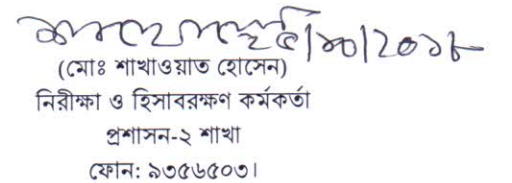 ১০/২০১৮
(মোঃ শাখাওয়াত হোসেন)
নিরীক্ষা ও হিসাবরক্ষণ কর্মকর্তা
প্রশাসন-২ শাখা
ফোন: ৯৩৫৬৫০৩।